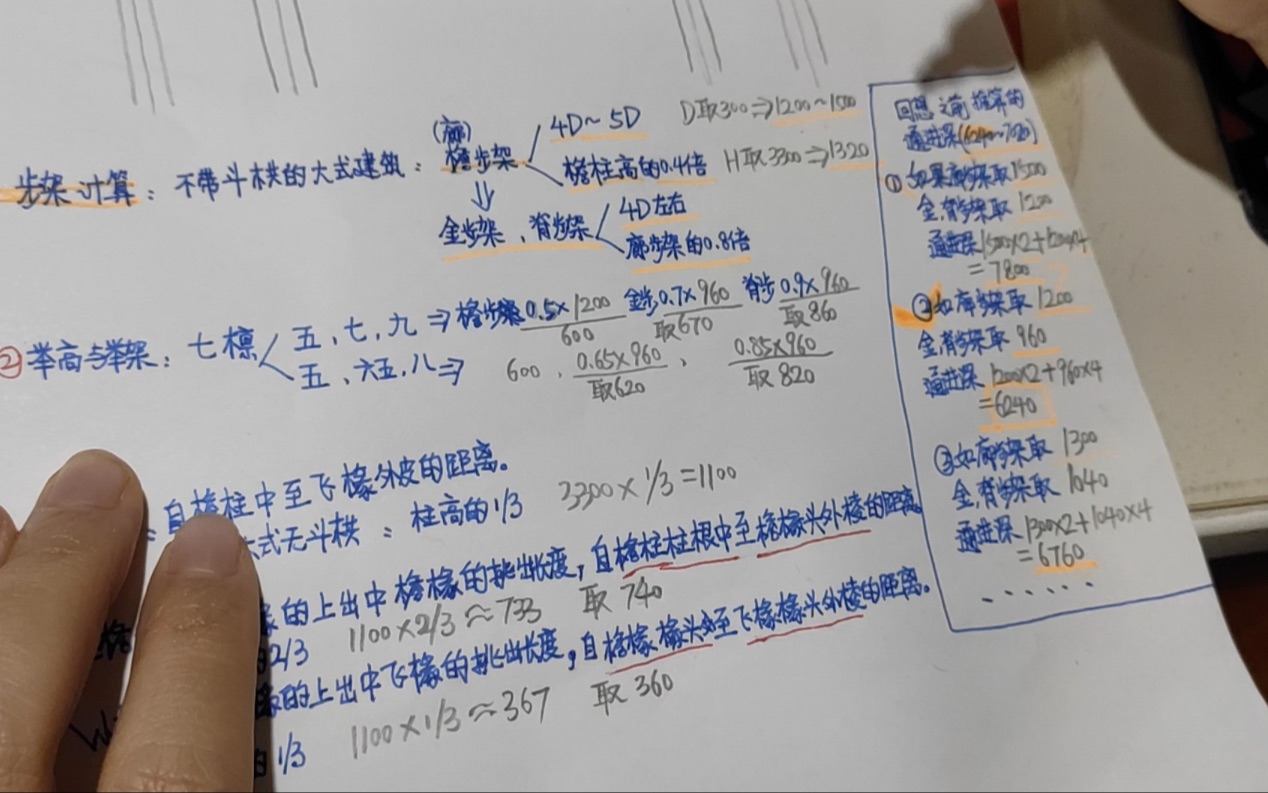 (廊)
步架计算：不带斗栱的大式建筑：檐步架
4D～5D D取300⇒1200～1500
檐柱高的0.4倍 H取3300⇒1320
⇓
金步架、脊步架
4D左右
廊步架的0.8倍
②举高与举架：七檩
五、七、九⇒檐步架 0.5×1200 金步 0.7×960 脊步 0.9×960
600 取670 取860
五、六五、八⇒ 600、0.65×960、0.85×960
取620 取820
：自檐柱中至飞椽外皮的距离。
大式无斗栱：柱高的1/3 3300×1/3=1100
的上出中檐椽的挑出长度，自檐柱柱根中至檐椽头外棱的距离。
2/3 1100×2/3≈733 取740
的上出中飞椽的挑出长度，自檐椽椽头至飞椽椽头外棱的距离。
1/3 1100×1/3≈367 取360
回想之前推算的
通进深(6240～7020)
①如果廊步架取1500
金、脊步架取1200
通进深1500×2+1200×4
=7800
②如廊步架取1200
金、脊步架取960
通进深1200×2+960×4
=6240
③如廊步架取1300
金、脊步架取1040
通进深1300×2+1040×4
=6760
······